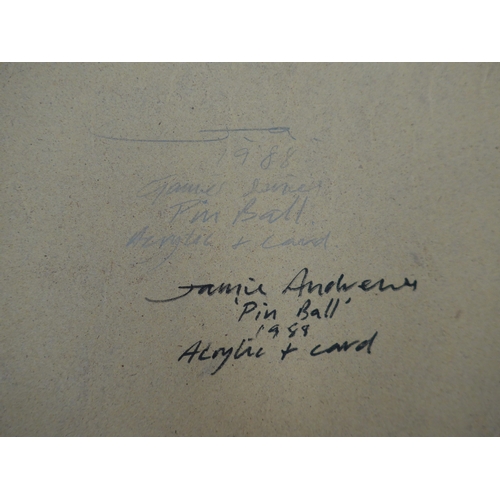 1988
James
Pin Ball
Acrylic + card
Jamie Andrews
'Pin Ball'
1988
Acrylic + card